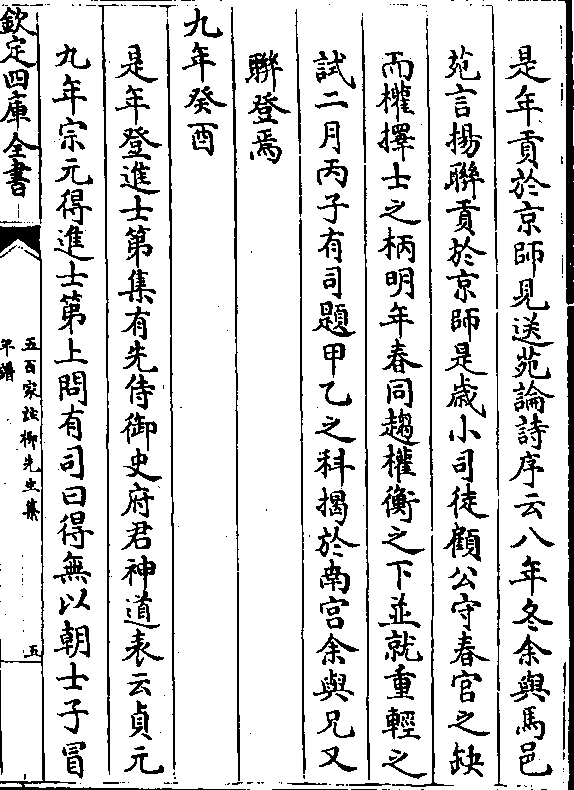 是年貢於京師見送苑論詩序云八年冬余與馬邑
苑言揚聯貢於京師是歳小司徒顧公守春官之缺
而權擇士之柄明年春同趨權衡之下並就重輕之
試二月丙子有司題甲乙之科揭於南宫余與兄又
聯登焉
九年癸酉
是年登進士第集有先侍御史府君神道表云貞元
九年宗元得進士第上問有司曰得無以朝士子冒
欽定四庫全書
五百家註柳先生集
年譜
五